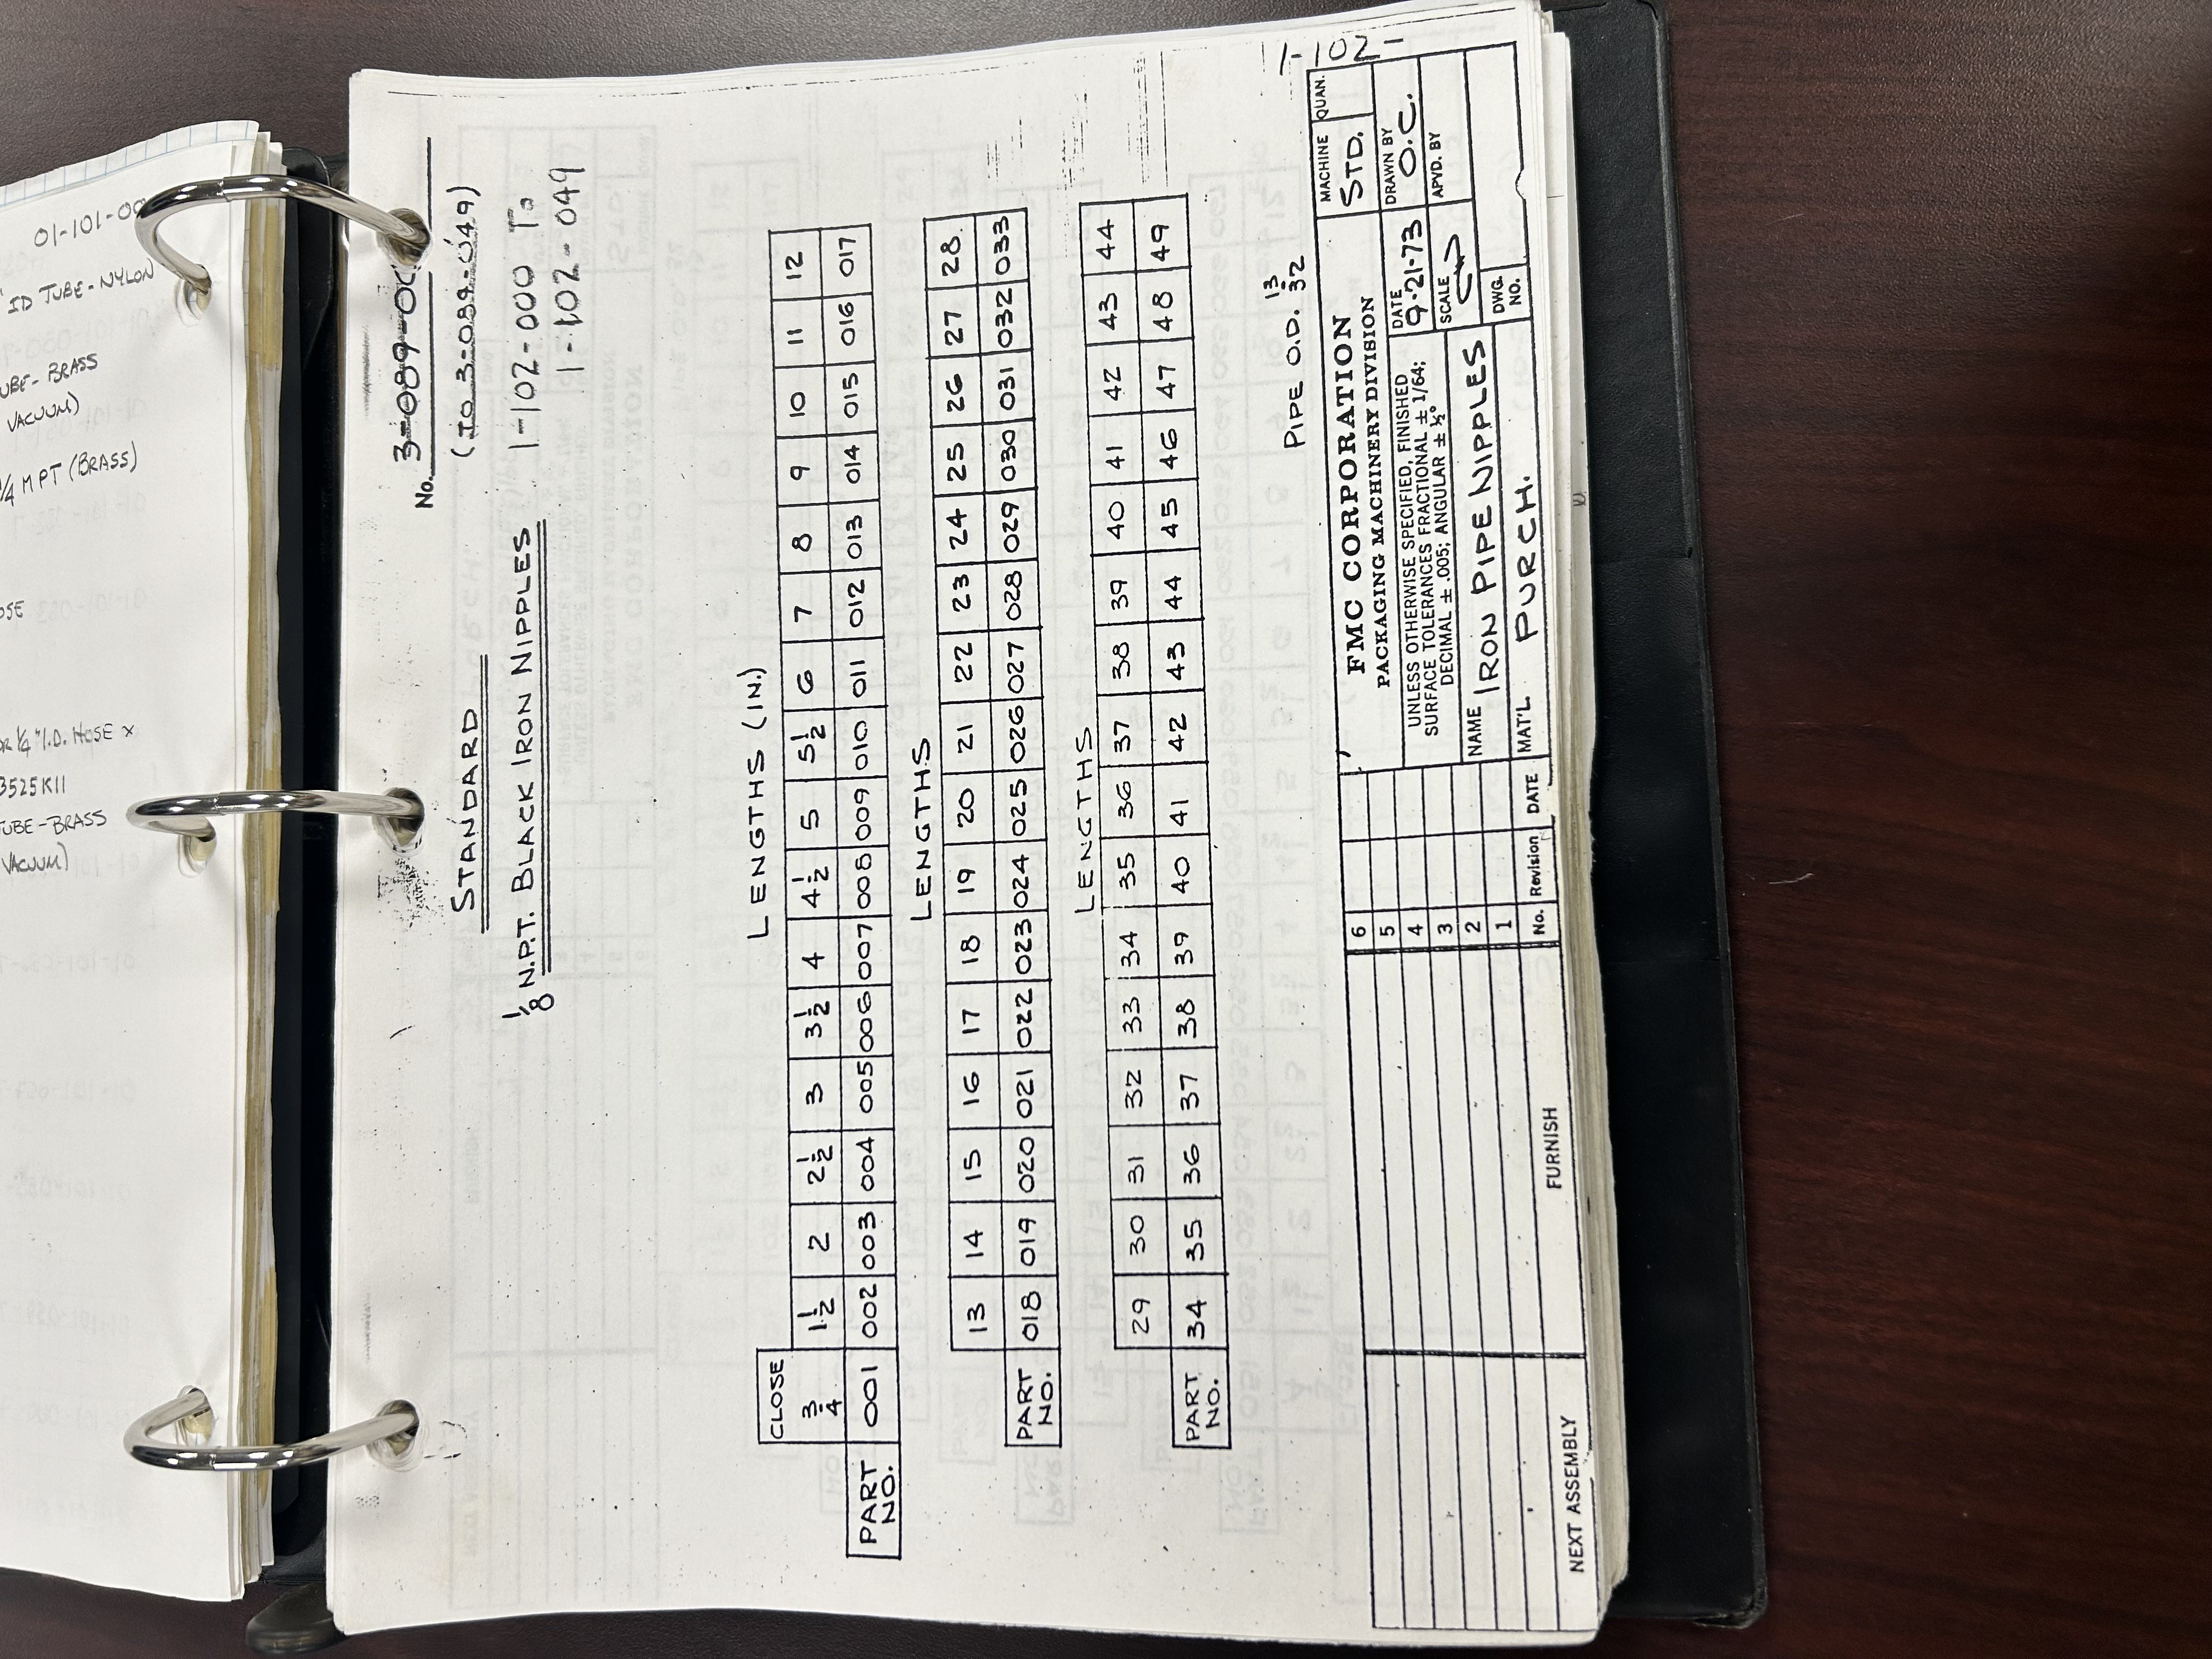 01-101-00
ID TUBE - NYLON
UBE - BRASS
VACUUM)
1/4 MPT (BRASS)
OSE
x 1/4" I.D. HOSE x
3525K11
TUBE - BRASS
VACUUM)
No. 3-089-00
(TO 3-089-049)
STANDARD
1/8 N.P.T. BLACK IRON NIPPLES
1-102-000 To
1-102-049
LENGTHS (IN.)
CLOSE
3/4 1 1/2 2 2 1/2 3 3 1/2 4 4 1/2 5 5 1/2 6 7 8 9 10 11 12
PART NO. 001 002 003 004 005 006 007 008 009 010 011 012 013 014 015 016 017
LENGTHS
13 14 15 16 17 18 19 20 21 22 23 24 25 26 27 28.
PART NO. 018 019 020 021 022 023 024 025 026 027 028 029 030 031 032 033
LENGTHS
29 30 31 32 33 34 35 36 37 38 39 40 41 42 43 44
PART NO. 34 35 36 37 38 39 40 41 42 43 44 45 46 47 48 49
PIPE O.D. 13/32
1-102-
NEXT ASSEMBLY
FURNISH
6
5
4
3
2
1
No. Revision DATE
FMC CORPORATION
PACKAGING MACHINERY DIVISION
MACHINE
STD.
QUAN.
UNLESS OTHERWISE SPECIFIED, FINISHED
SURFACE TOLERANCES FRACTIONAL ± 1/64;
DECIMAL ± .005; ANGULAR ± ½°
DATE
9-21-73
DRAWN BY
O.C.
SCALE
APVD. BY
NAME IRON PIPE NIPPLES
MAT'L PURCH.
DWG.
NO.